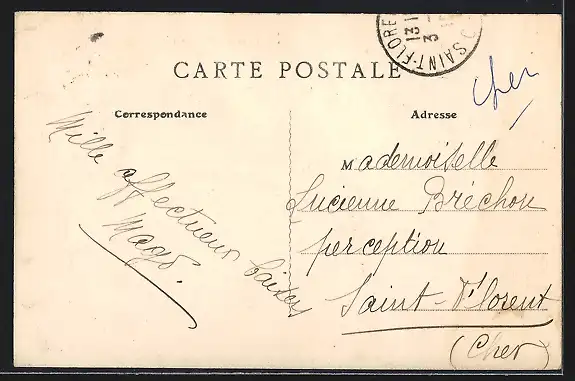 CARTE POSTALE
SAINT-FLORE
13
3
cher
Correspondance
Adresse
Mille affectueux baisers
Mago.
Mademoiselle
Lucienne Bréchon
perception
Saint-Florent
(Cher)